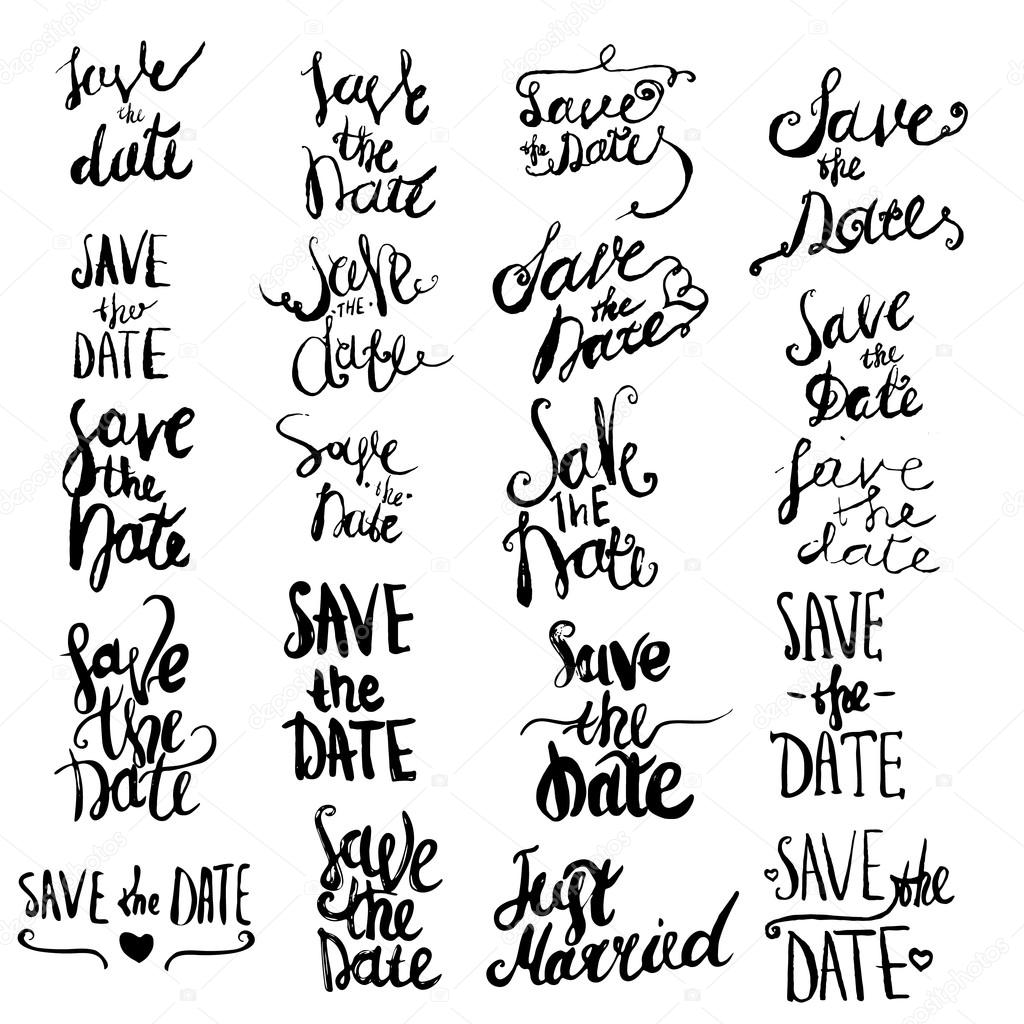 Save
the
date
SAVE
the
DATE
Save
the
Date
Save
the
Date
SAVE the DATE
Save
the
Date
Save
THE
date
Save
the
Date
SAVE
the
DATE
Save
the
Date
Save
the Dates
Save
the
Dates
Save
THE
Date
Save
the
Date
Just
Married
Save
the
Dates
Save
the
Date
Save
the
date
SAVE
-the-
DATE
SAVE the
DATE
depositphotos